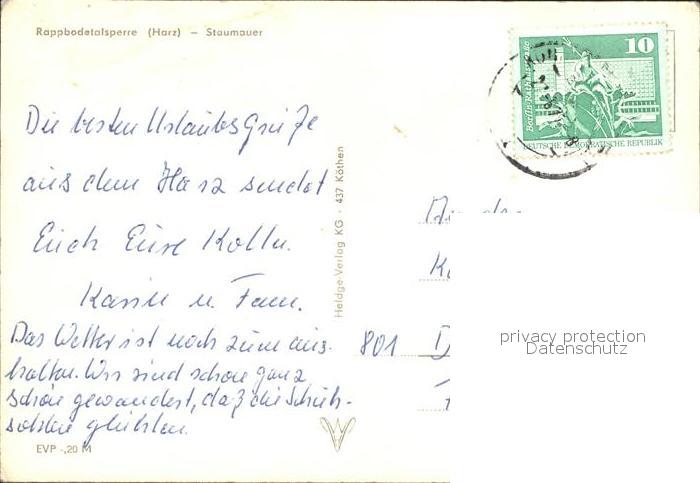 Rappbodetalsperre (Harz) – Staumauer
10
Berlin, Rathausstraße
DEUTSCHE DEMOKRATISCHE REPUBLIK
Die besten Urlaubsgrüße
aus dem Harz sendet
Euch Eure Kolln.
Karin u. Fam.
Das Wetter ist noch zum aus-
halten. Wir sind schon ganz
schön gewandert, daß die Schuh-
sohlen glühten.
EVP -,20 M
Heldge-Verlag KG · 437 Köthen
801 D
privacy protection
Datenschutz